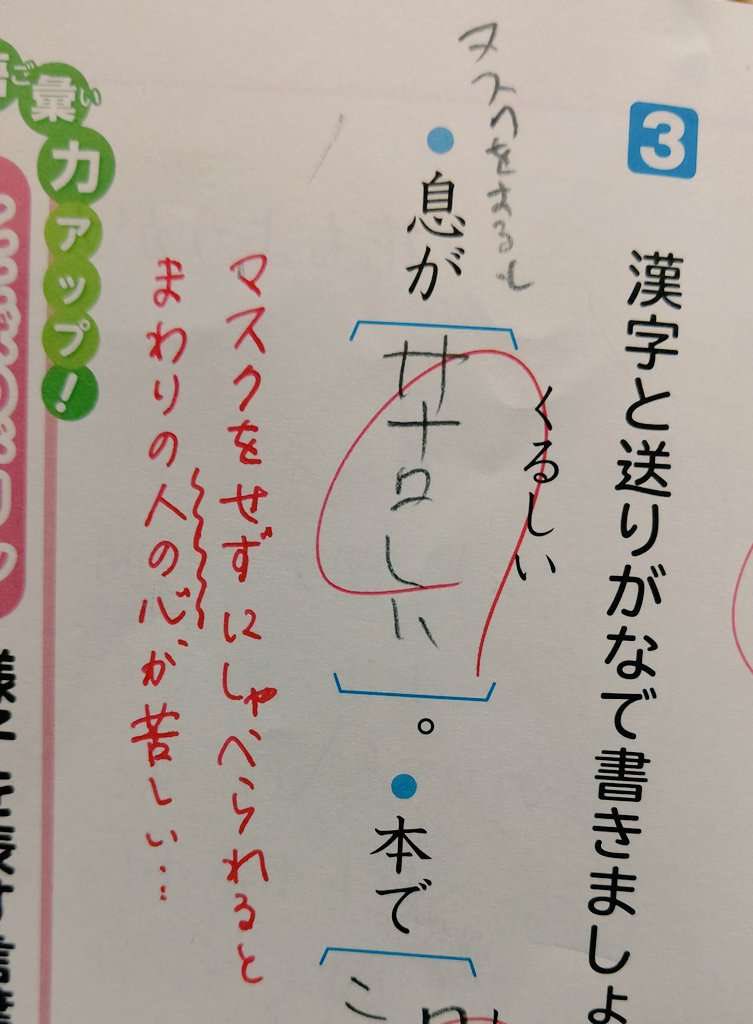 3
漢字と送りがなで書きましょ
マスクをすると
・息が
くるしい
苦しい
。・本で
こ
マスクをせずにしゃべられると
まわりの人の心が苦しい…
語彙力アップ!
ごい